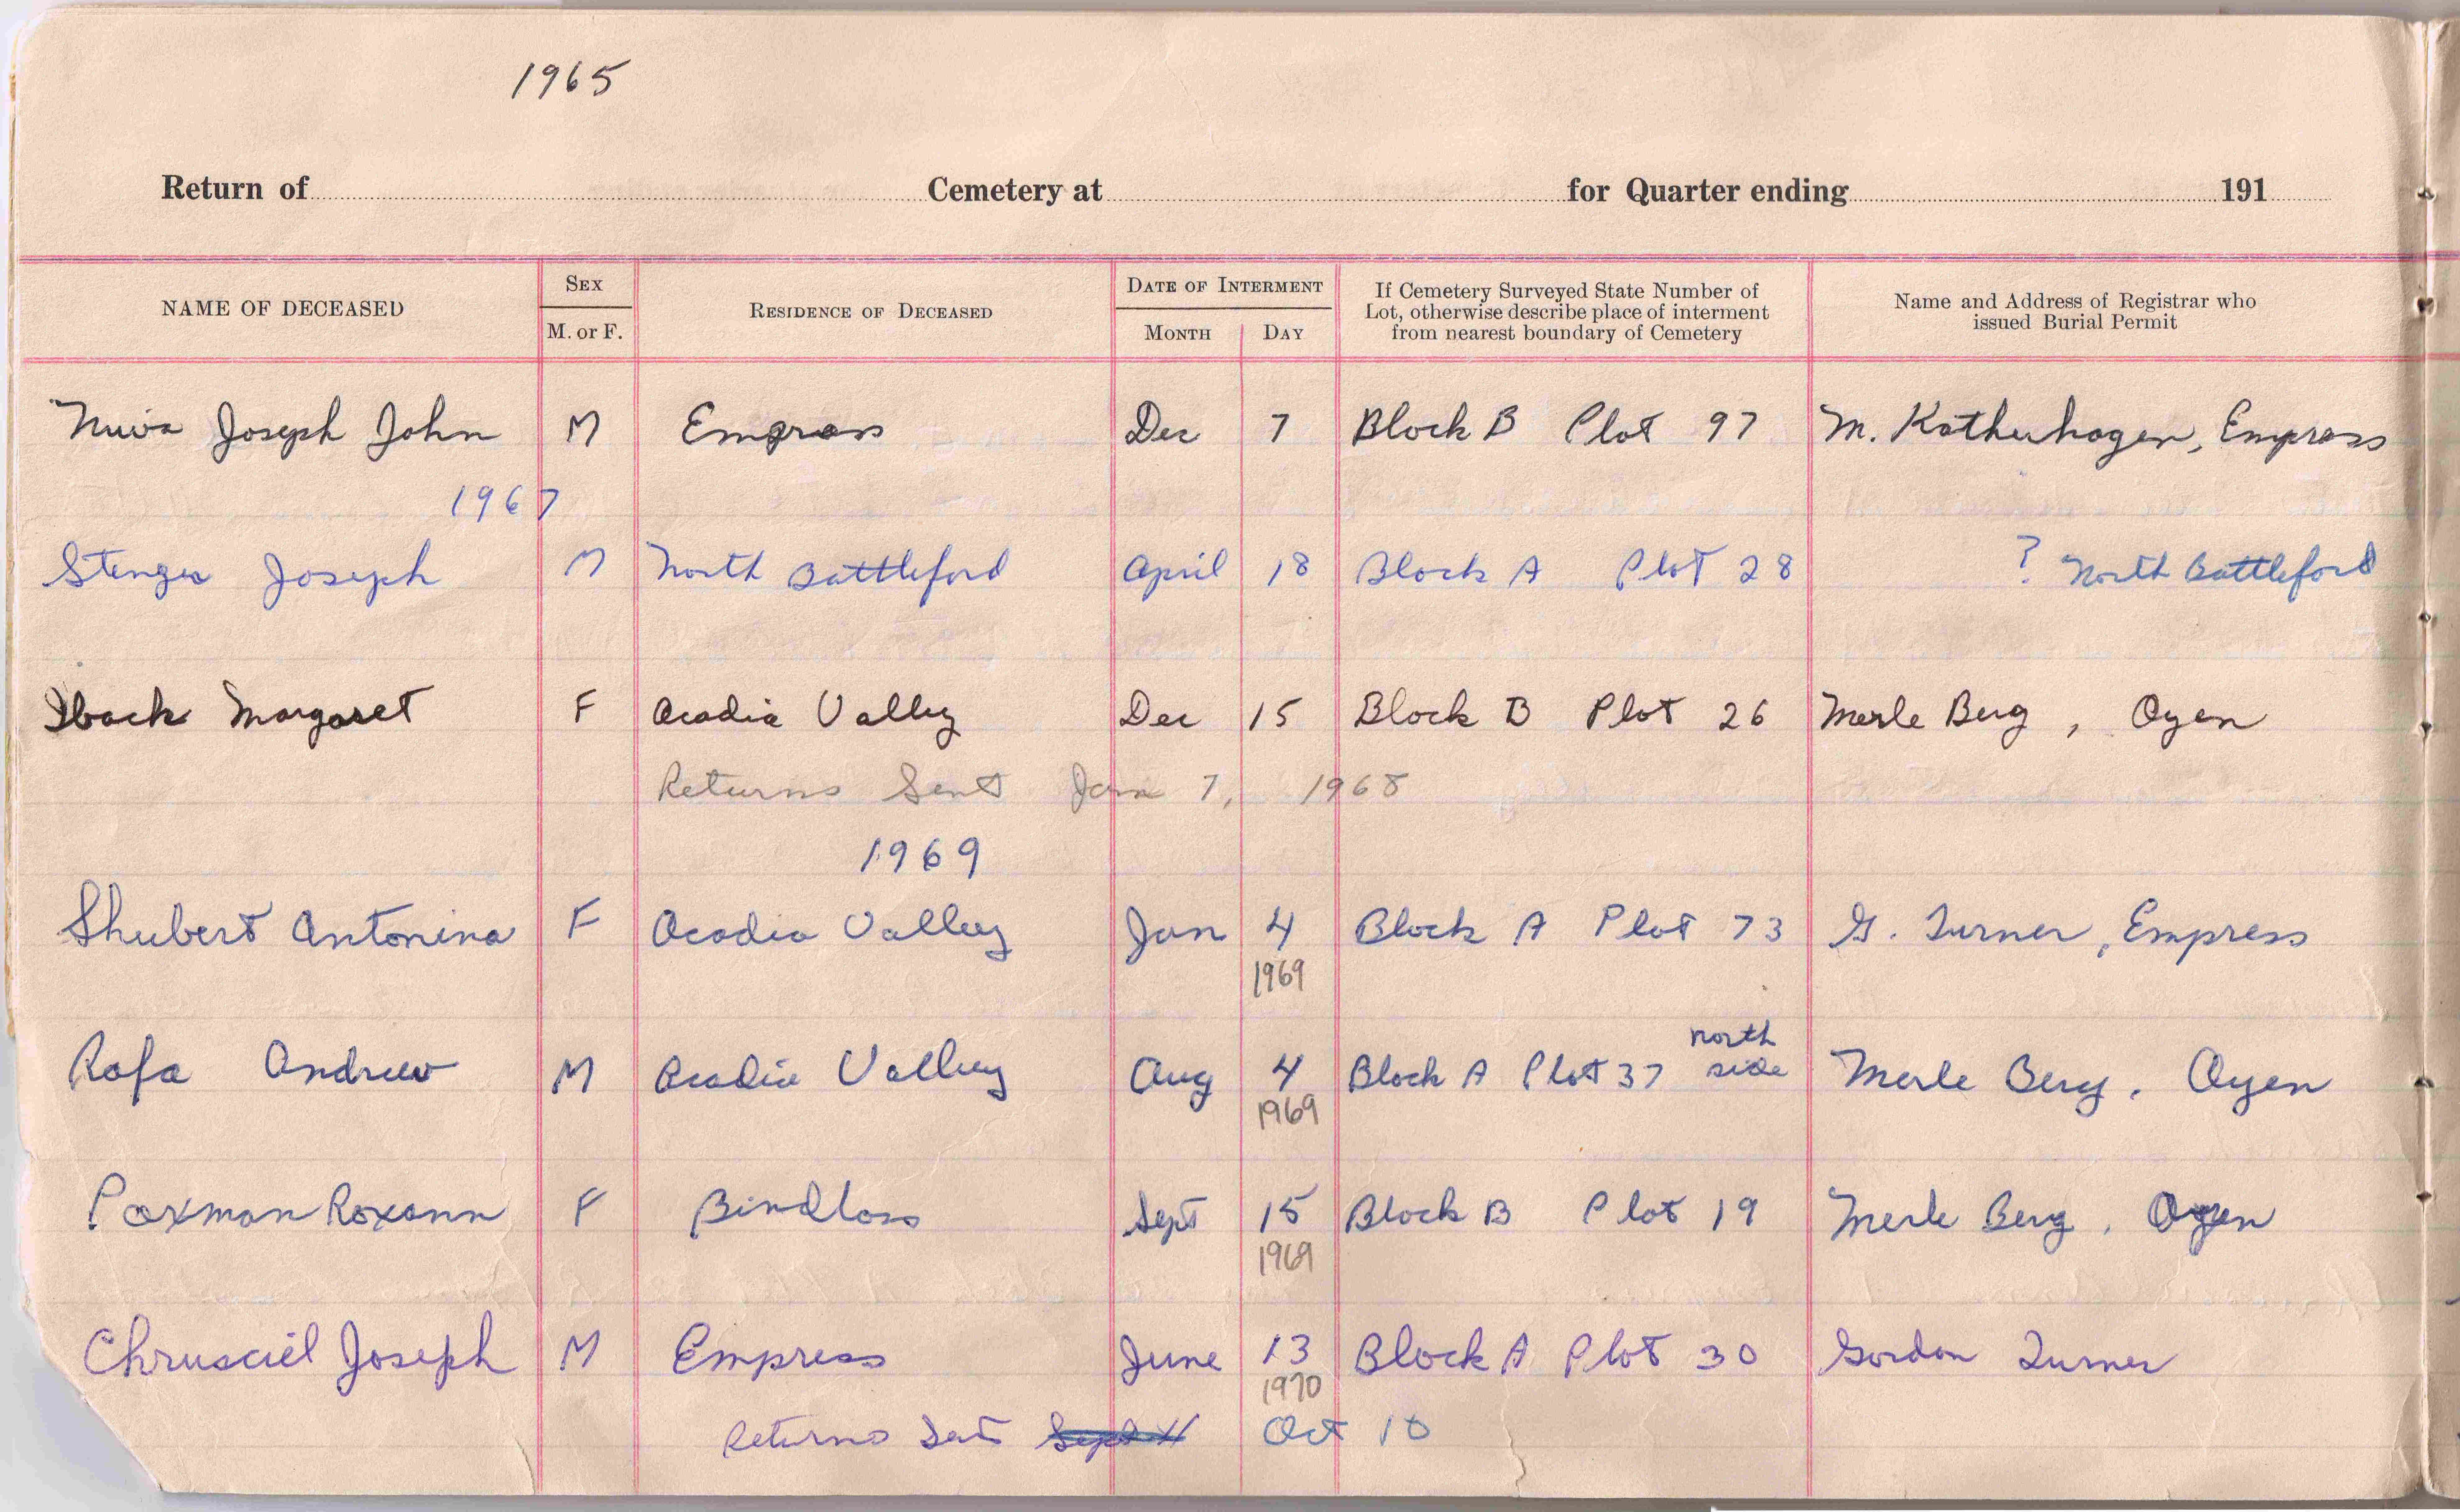 1965
Return of Cemetery at for Quarter ending 191
NAME OF DECEASED SEX M. or F. RESIDENCE OF DECEASED DATE OF INTERMENT MONTH DAY If Cemetery Surveyed State Number of Lot, otherwise describe place of interment from nearest boundary of Cemetery Name and Address of Registrar who issued Burial Permit
Joseph John M Empress Dec 7 Block B Plot 97 M. Katherhagen, Empress
1967
Stenger Joseph M North Battleford April 18 Block A Plot 28 ? North Battleford
Margaret F Acadia Valley Dec 15 Block B Plot 26 Merle Berg, Oyen
Returns Sent Jan 7, 1968
1969
Shubert Antonina F Acadia Valley Jan 4 Block A Plot 73 G. Turner, Empress
1969
north
Rafa Andrew M Acadia Valley Aug 4 Block A Plot 37 side Merle Berg, Oyen
1969
Paxman Roxann F Bindloss Sept 15 Block B Plot 19 Merle Berg, Oyen
1969
Chrusciel Joseph M Empress June 13 Block A Plot 30 Gordon Turner
1970
Returns Sent Sept Oct 10